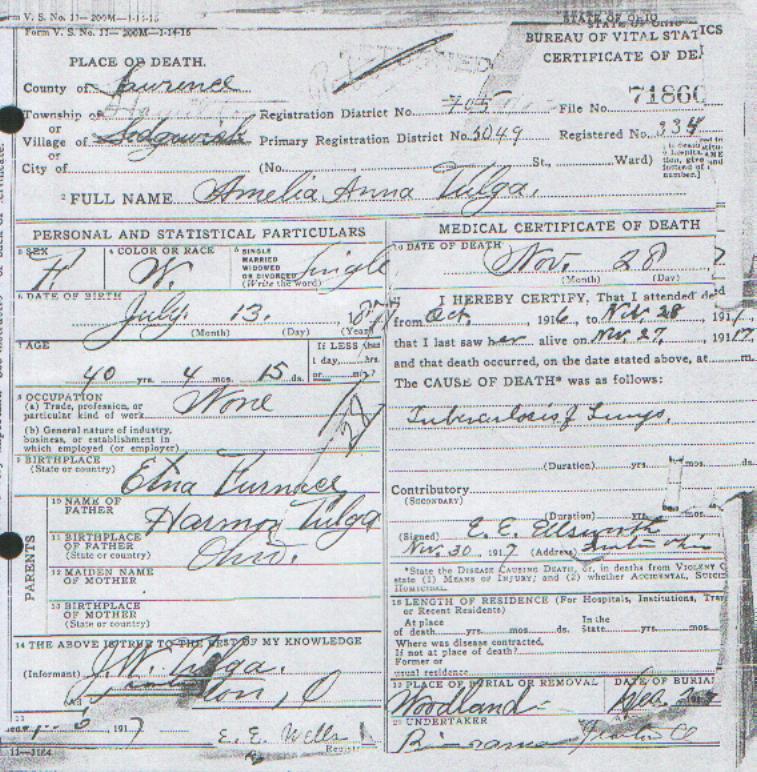 Form V. S. No. 11— 200M—1-14-16
STATE OF OHIO
BUREAU OF VITAL STATICS
CERTIFICATE OF DE
PLACE OF DEATH.
County of Lawrence
Township of
or
Village of
or
City of
Registration District No. 705
File No. 71860
Primary Registration District No. 3049
Registered No. 334
(No. St., Ward)
2 FULL NAME Amelia Anna Tulga.
PERSONAL AND STATISTICAL PARTICULARS
3 SEX F.
4 COLOR OR RACE W.
5 SINGLE
MARRIED
WIDOWED
OR DIVORCED
(Write the word)
Single
6 DATE OF BIRTH
July. 13.
(Month) (Day) (Year)
7 AGE
40 yrs. 4 mos. 15 ds.
If LESS than
1 day, hrs.
or
8 OCCUPATION
(a) Trade, profession, or
particular kind of work
None
(b) General nature of industry,
business, or establishment in
which employed (or employer)
9 BIRTHPLACE
(State or country)
Etna Furnace
PARENTS
10 NAME OF
FATHER
Harmon Tulga
11 BIRTHPLACE
OF FATHER
(State or country)
Ohio.
12 MAIDEN NAME
OF MOTHER
13 BIRTHPLACE
OF MOTHER
(State or country)
14 THE ABOVE IS TRUE TO THE BEST OF MY KNOWLEDGE
(Informant) J. W. Tulga.
1917
E. E. Wells
11—3184
MEDICAL CERTIFICATE OF DEATH
DATE OF DEATH
Nov. 28
(Month) (Day)
I HEREBY CERTIFY, That I attended
from Oct. 1916, to Nov. 28 191
that I last saw her alive on Nov. 27, 1917,
and that death occurred, on the date stated above, at m.
The CAUSE OF DEATH* was as follows:
Tuberculosis of Lungs.
(Duration) yrs. mos. ds.
Contributory
(SECONDARY)
(Duration) yrs. mos.
(Signed) E. E. Ellsworth
Nov. 30, 1917 (Address)
*State the DISEASE CAUSING DEATH, or, in deaths from VIOLENT C
state (1) MEANS OF INJURY; and (2) whether ACCIDENTAL, SUICID
HOMICIDAL.
18 LENGTH OF RESIDENCE (For Hospitals, Institutions, Tran
or Recent Residents)
At place
of death yrs. mos. ds.
In the
State yrs. mos.
Where was disease contracted,
If not at place of death?
Former or
usual residence
19 PLACE OF BURIAL OR REMOVAL
Woodland
DATE OF BURIA
20 UNDERTAKER